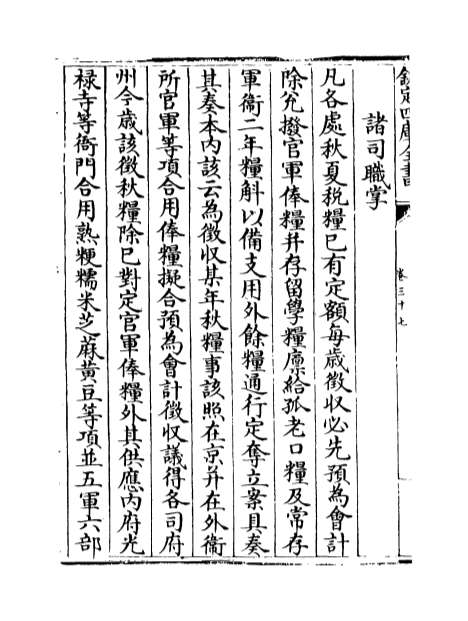 欽定四庫全書
卷三十七
諸司職掌
凡各處秋夏税糧已有定額每歲徵収必先預為會計
除兊撥官軍俸糧并存留學糧廪給孤老口糧及常存
軍衞二年糧斛以備支用外餘糧通行定奪立案具奏
其奏本内該云為徵収某年秋糧事該照在京并在外衞
所官軍等項合用俸糧擬合預為會計徵収議得各司府
州今歲該徵秋糧除已對定官軍俸糧外其供應内府光
禄寺等衙門合用熟粳糯米芝蔴黄豆等項並五軍六部